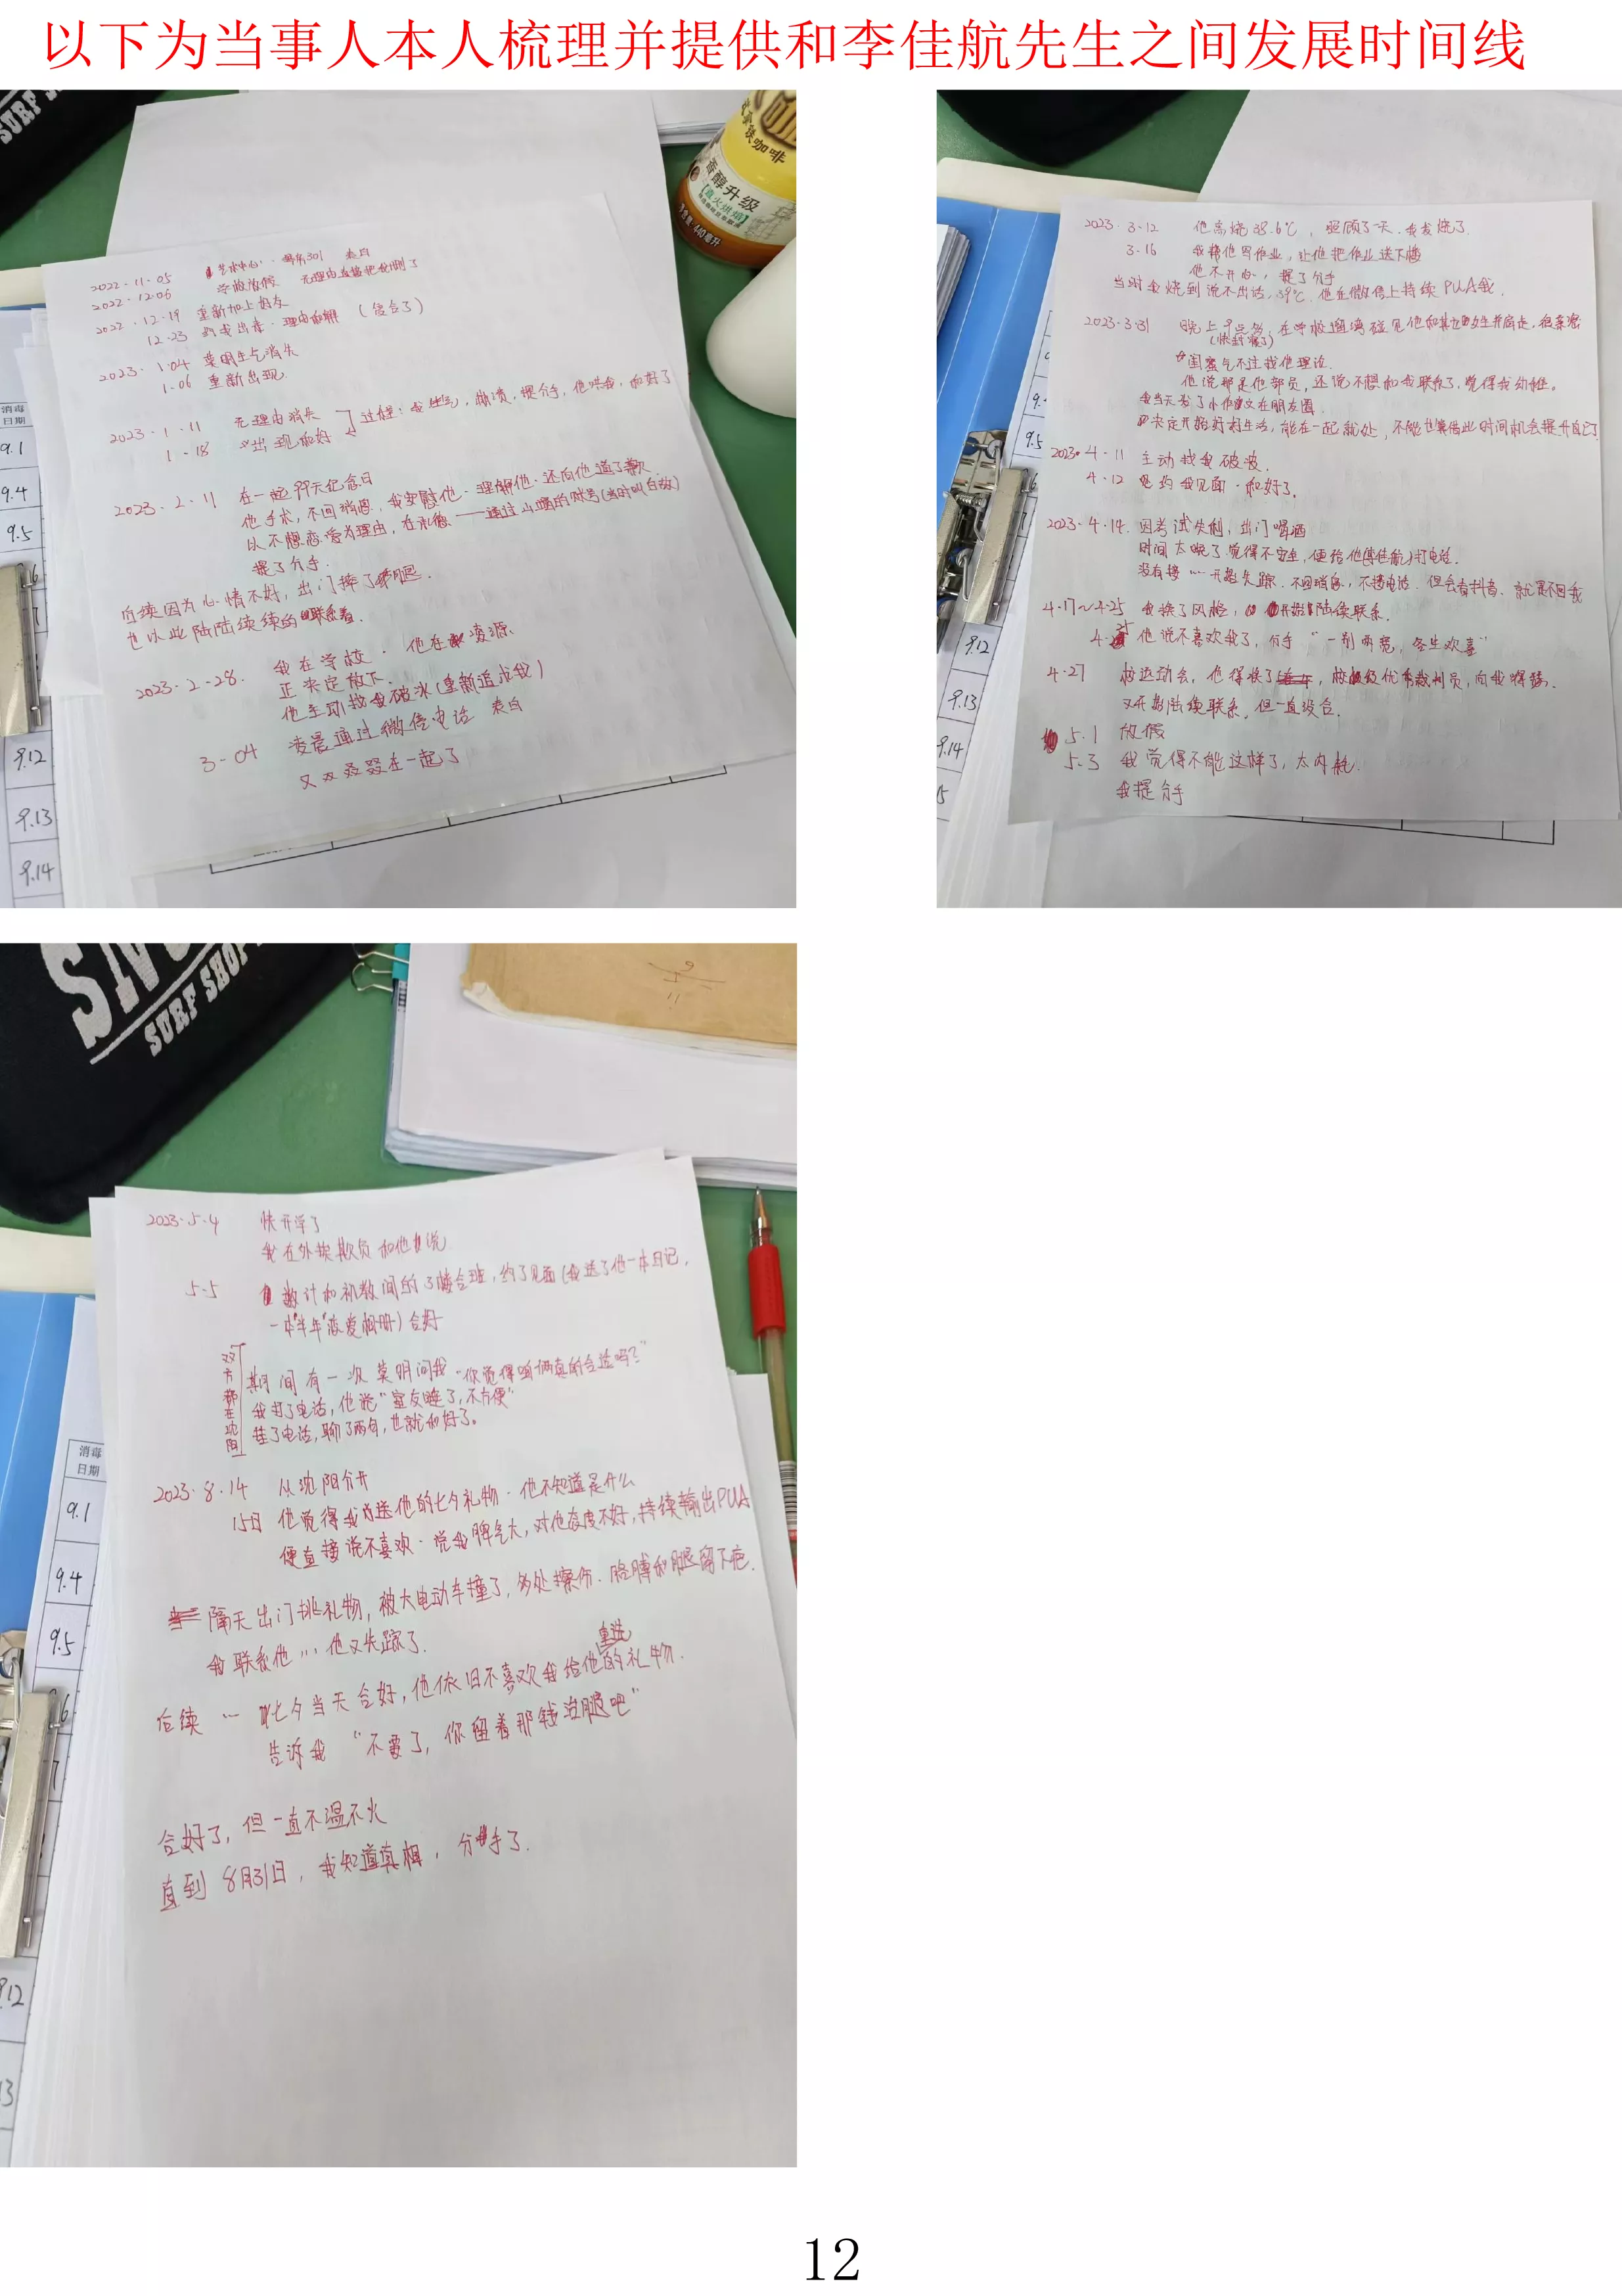 以下为当事人本人梳理并提供和李佳航先生之间发展时间线
SURF
咖啡
香醇升级
440毫升
消毒
日期
9.1
9.4
9.5
9.12
9.13
9.14
2022·11·05 艺术中心 舞房301 表白
2022·12·06 学校放假 无理由直接把我删了
2022·12·19 重新加上好友
12·23 理由和解(复合了)
2023·1·04 莫明生气消失
1·06 重新出现
2023·1·11 无理由消失
1·18 出现和好
过程:我生气,崩溃,提分手,他哄我,和好了
2023·2·11 在一起99天纪念日
他手术,不回消息,我安慰他·理解他·还向他道了歉
以不想恋爱为理由,在 通过 的账号(当时叫白敬)
提了分手.
后续因为心情不好,出门摔了腿.
也以此陆陆续续的联系着.
2023·2·28· 我在学校·他在凌源
正决定放下·
他主动找我破冰(重新追求我)
3-04 凌晨通过微信电话 表白
又双叒叕在一起了
2023·3·12 他高烧38.6℃,照顾了一天·我发烧了
3·16 我帮他写作业,让他把作业送下楼
他不开心,提了分手
当时我烧到说不出话,39℃,他在微信上持续PUA我.
2023·3·31 晚上9点多,在学校遛弯碰见他和其他女生并肩走,很亲密
(快封寝了)
闺蜜气不过找他理论
他说那是他部员,还说不想和我联系了,觉得我幼稚。
我当天发了小作文在朋友圈
决定开始好好生活,能在一起就处,不能也算借此时间机会提升自己了
2023·4·11 主动找我破冰.
4·12 约我见面·和好了。
2023·4·14. 因考试失利,出门喝酒
时间太晚了觉得不安全,便给他(李佳航)打电话.
没有接…开始失踪·不回消息,不接电话.但会看抖音.就是不回我
4·17~4·25 我换了风格,开始陆续联系.
4·25 他说不喜欢我了,分手“一别两宽,各生欢喜”
4·27 校运动会,他得获了校级优秀裁判员,向我嘚瑟.
又开始陆续联系,但一直没合.
5·1 放假
5·3 我觉得不能这样了,太内耗.
我提分手
SURF SHOP
消毒
日期
9.1
9.4
9.5
9.12
2023·5·4 快开学了
我在外挨欺负和他说
5·5 数计和机数间的3楼合班,约了见面(我送了他一本日记,
一本“半年”恋爱相册)合好
双方都在沈阳
期间有一次莫明问我“你觉得咱俩真的合适吗?”
我打了电话,他说“室友睡了,不方便”
挂了电话,聊了两句,也就和好了。
2023·8·14 从沈阳分开
15日 他觉得我送他的七夕礼物·他不知道是什么
便直接说不喜欢·说我脾气大,对他态度不好,持续输出PUA
隔天出门挑礼物,被大电动车撞了,多处擦伤·胳膊和腿留下疤.
我联系他…他又失踪了.
后续…七夕当天合好,他依旧不喜欢我给他重选的礼物.
告诉我“不要了,你留着那钱治腿吧”
合好了,但一直不温不火
直到8月31日,我知道真相,分手了.
12